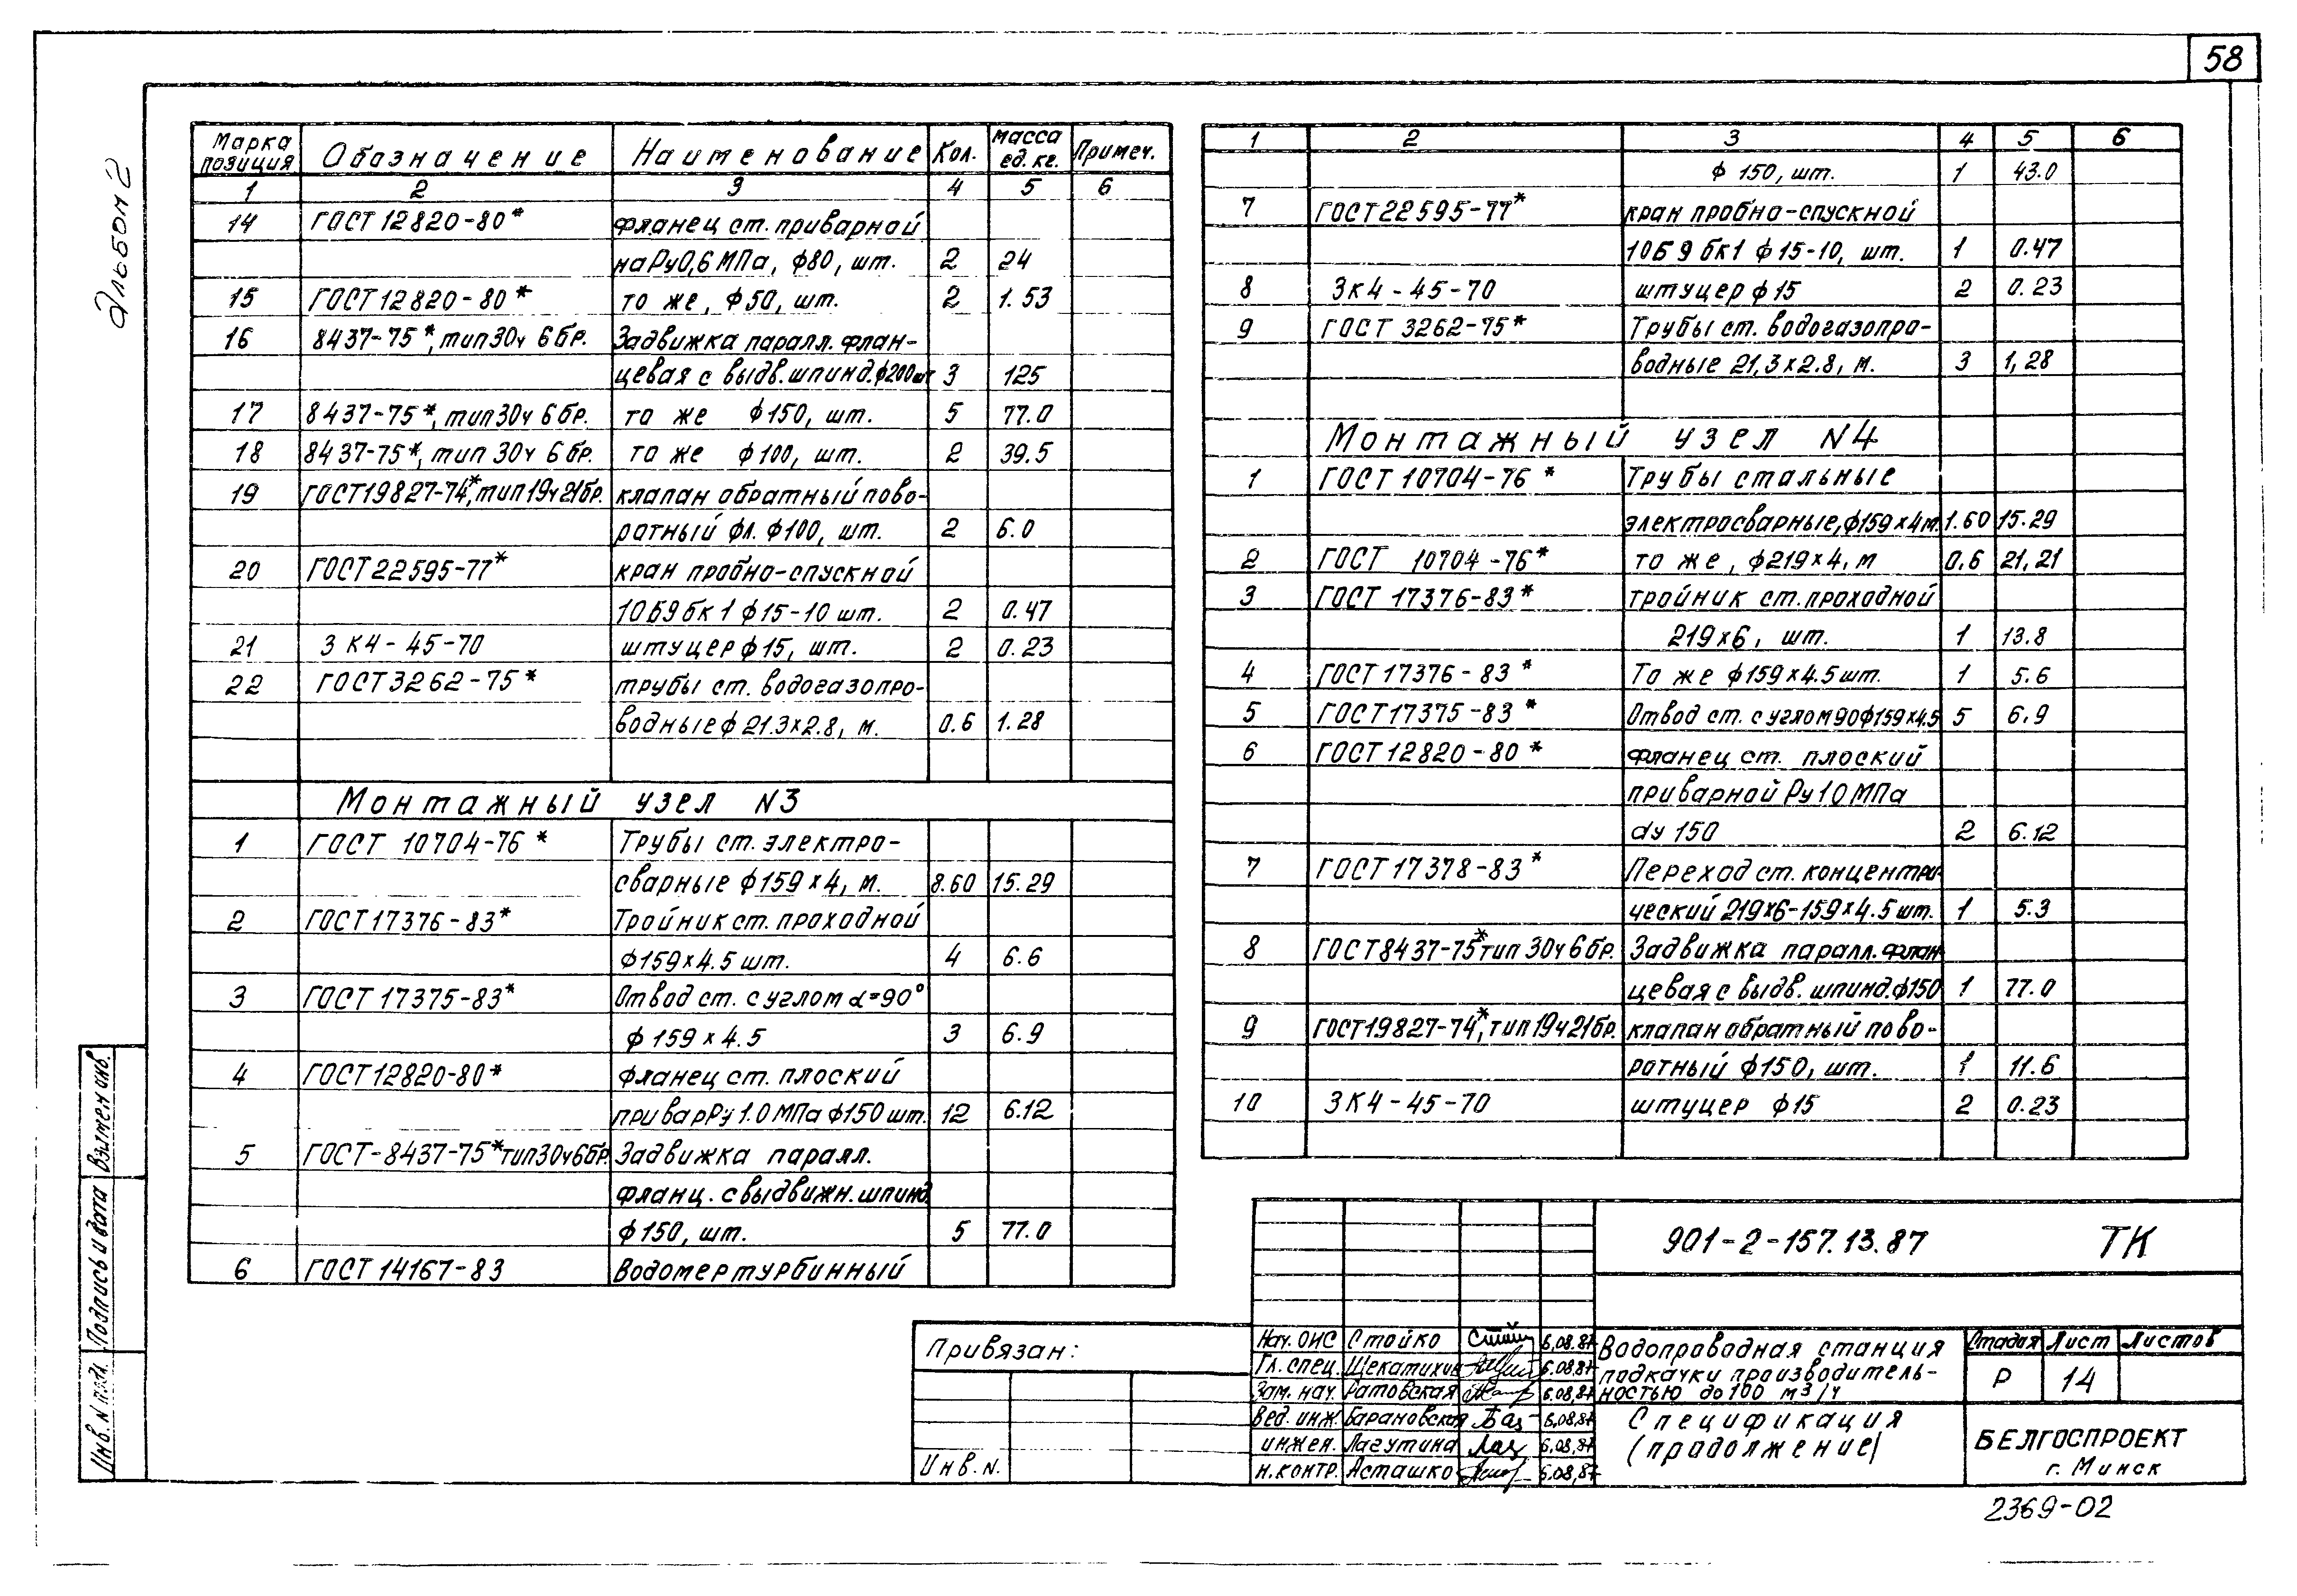 58
Альбом 2
Марка позиция | Обозначение | Наименование | Кол. | Масса ед. кг. | Примеч.
1 | 2 | 3 | 4 | 5 | 6
14 | ГОСТ 12820-80* | фланец ст. приварной
на Ру0,6 МПа, ф80, шт. | 2 | 24
15 | ГОСТ 12820-80* | то же, ф50, шт. | 2 | 1.53
16 | 8437-75*, тип 30ч 6бр. | Задвижка паралл. флан-
цевая с выдв. шпинд. ф200 шт | 3 | 125
17 | 8437-75*, тип 30ч 6бр. | то же ф150, шт. | 5 | 77.0
18 | 8437-75*, тип 30ч 6бр. | то же ф100, шт. | 2 | 39.5
19 | ГОСТ 19827-74*, тип 19ч21бр. | клапан обратный пово-
ратный фл. ф100, шт. | 2 | 6.0
20 | ГОСТ 22595-77* | кран пробно-спускной
10Б9бк1 ф15-10 шт. | 2 | 0.47
21 | 3К4-45-70 | штуцер ф15, шт. | 2 | 0.23
22 | ГОСТ 3262-75* | трубы ст. водогазопро-
водные ф21.3х2.8, м. | 0.6 | 1.28
Монтажный узел N3
1 | ГОСТ 10704-76* | Трубы ст. электро-
сварные ф159х4, м. | 8.60 | 15.29
2 | ГОСТ 17376-83* | Тройник ст. проходной
ф159х4.5 шт. | 4 | 6.6
3 | ГОСТ 17375-83* | Отвод ст. с углом α=90°
ф159х4.5 | 3 | 6.9
4 | ГОСТ 12820-80* | фланец ст. плоский
привар Ру 1.0 МПа ф150 шт. | 12 | 6.12
5 | ГОСТ-8437-75* тип 30ч6бр. | Задвижка паралл.
фланц. с выдвижн. шпинд.
ф150, шт. | 5 | 77.0
6 | ГОСТ 14167-83 | Водомер турбинный
1 | 2 | 3 | 4 | 5 | 6
ф 150, шт. | 1 | 43.0
7 | ГОСТ 22595-77* | кран пробно-спускной
10Б9бк1 ф15-10, шт. | 1 | 0.47
8 | 3К4-45-70 | штуцер ф15 | 2 | 0.23
9 | ГОСТ 3262-75* | Трубы ст. водогазопро-
водные 21,3х2.8, м. | 3 | 1,28
Монтажный узел N4
1 | ГОСТ 10704-76* | Трубы стальные
электросварные, ф159х4 м. | 1.60 | 15.29
2 | ГОСТ 10704-76* | то же, ф219х4, м | 0.6 | 21,21
3 | ГОСТ 17376-83* | тройник ст. проходной
219х6, шт. | 1 | 13.8
4 | ГОСТ 17376-83* | То же ф159х4.5 шт. | 1 | 5.6
5 | ГОСТ 17375-83* | Отвод ст. с углом 90 ф159х4.5 | 5 | 6.9
6 | ГОСТ 12820-80* | фланец ст. плоский
приварной Ру 10 МПа
dу 150 | 2 | 6.12
7 | ГОСТ 17378-83* | Переход ст. концентри-
ческий 219х6-159х4.5 шт. | 1 | 5.3
8 | ГОСТ 8437-75* тип 30ч6бр. | Задвижка паралл. флан-
цевая с выдв. шпинд. ф150 | 1 | 77.0
9 | ГОСТ 19827-74*, тип 19ч21бр. | клапан обратный пово-
ратный ф150, шт. | 1 | 11.6
10 | 3К4-45-70 | штуцер ф15 | 2 | 0.23
901-2-157.13.87 ТК
Привязан:
Инв. N.
Нач. ОИС | Стойко | 6.08.87
Гл. спец. | Щекатихин | 6.08.87
Зам. нач. | Ратовская | 6.08.87
Вед. инж. | Барановская | 6.08.87
инжен. | Лагутина | 6.08.87
н. контр. | Асташко | 6.08.87
Водопроводная станция
подкачки производитель-
ностью до 100 м3/ч
Стадия | Лист | Листов
Р | 14
Спецификация
(продолжение)
БЕЛГОСПРОЕКТ
г. Минск
2369-02
Взамен инв.
Подпись и дата
Инв. N подл.